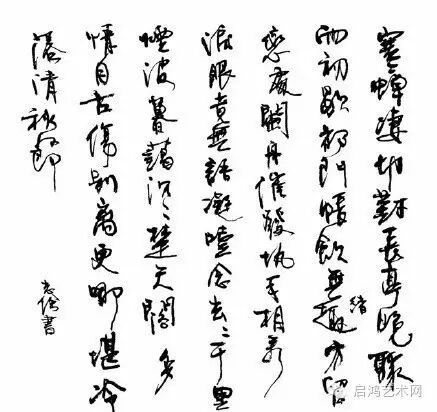 寒蟬凄切對長亭晚驟
雨初歇都門帳飲無趣方留
緒
戀處闌舟催發執手相看
淚眼竟無語凝噎念去々千里
煙波暮靄沉々楚天闊多
情自古傷別離更哪堪冷
落清秋節
書
启鸿艺术网